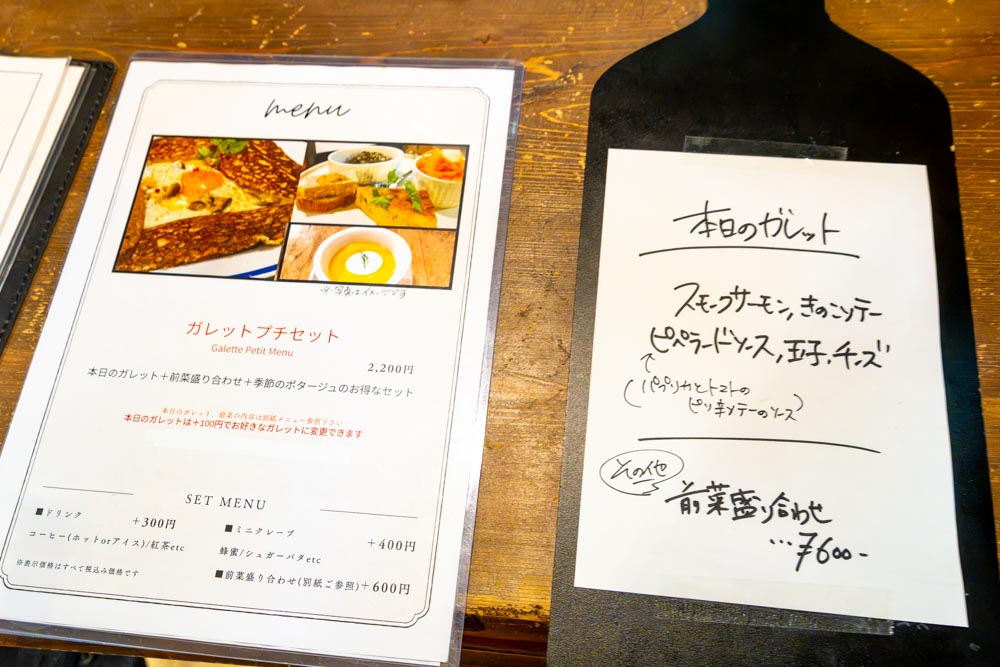 menu
※写真はイメージです
ガレットプチセット
Galette Petit Menu
2,200円
本日のガレット＋前菜盛り合わせ＋季節のポタージュのお得なセット
本日のガレット、前菜の内容は別紙メニュー参照下さい
本日のガレットは＋100円でお好きなガレットに変更できます
SET MENU
■ドリンク
＋300円
コーヒー(ホットorアイス)/紅茶etc
■ミニクレープ
＋400円
蜂蜜/シュガーバタetc
■前菜盛り合わせ(別紙ご参照)＋600円
※表示価格はすべて税込み価格です
本日のガレット
スモークサーモン,きのこソテー
ピペラードソース,玉子,チーズ
(パプリカとトマトの
ピリ辛ソテーのソース)
その他
前菜盛り合わせ
…¥600-